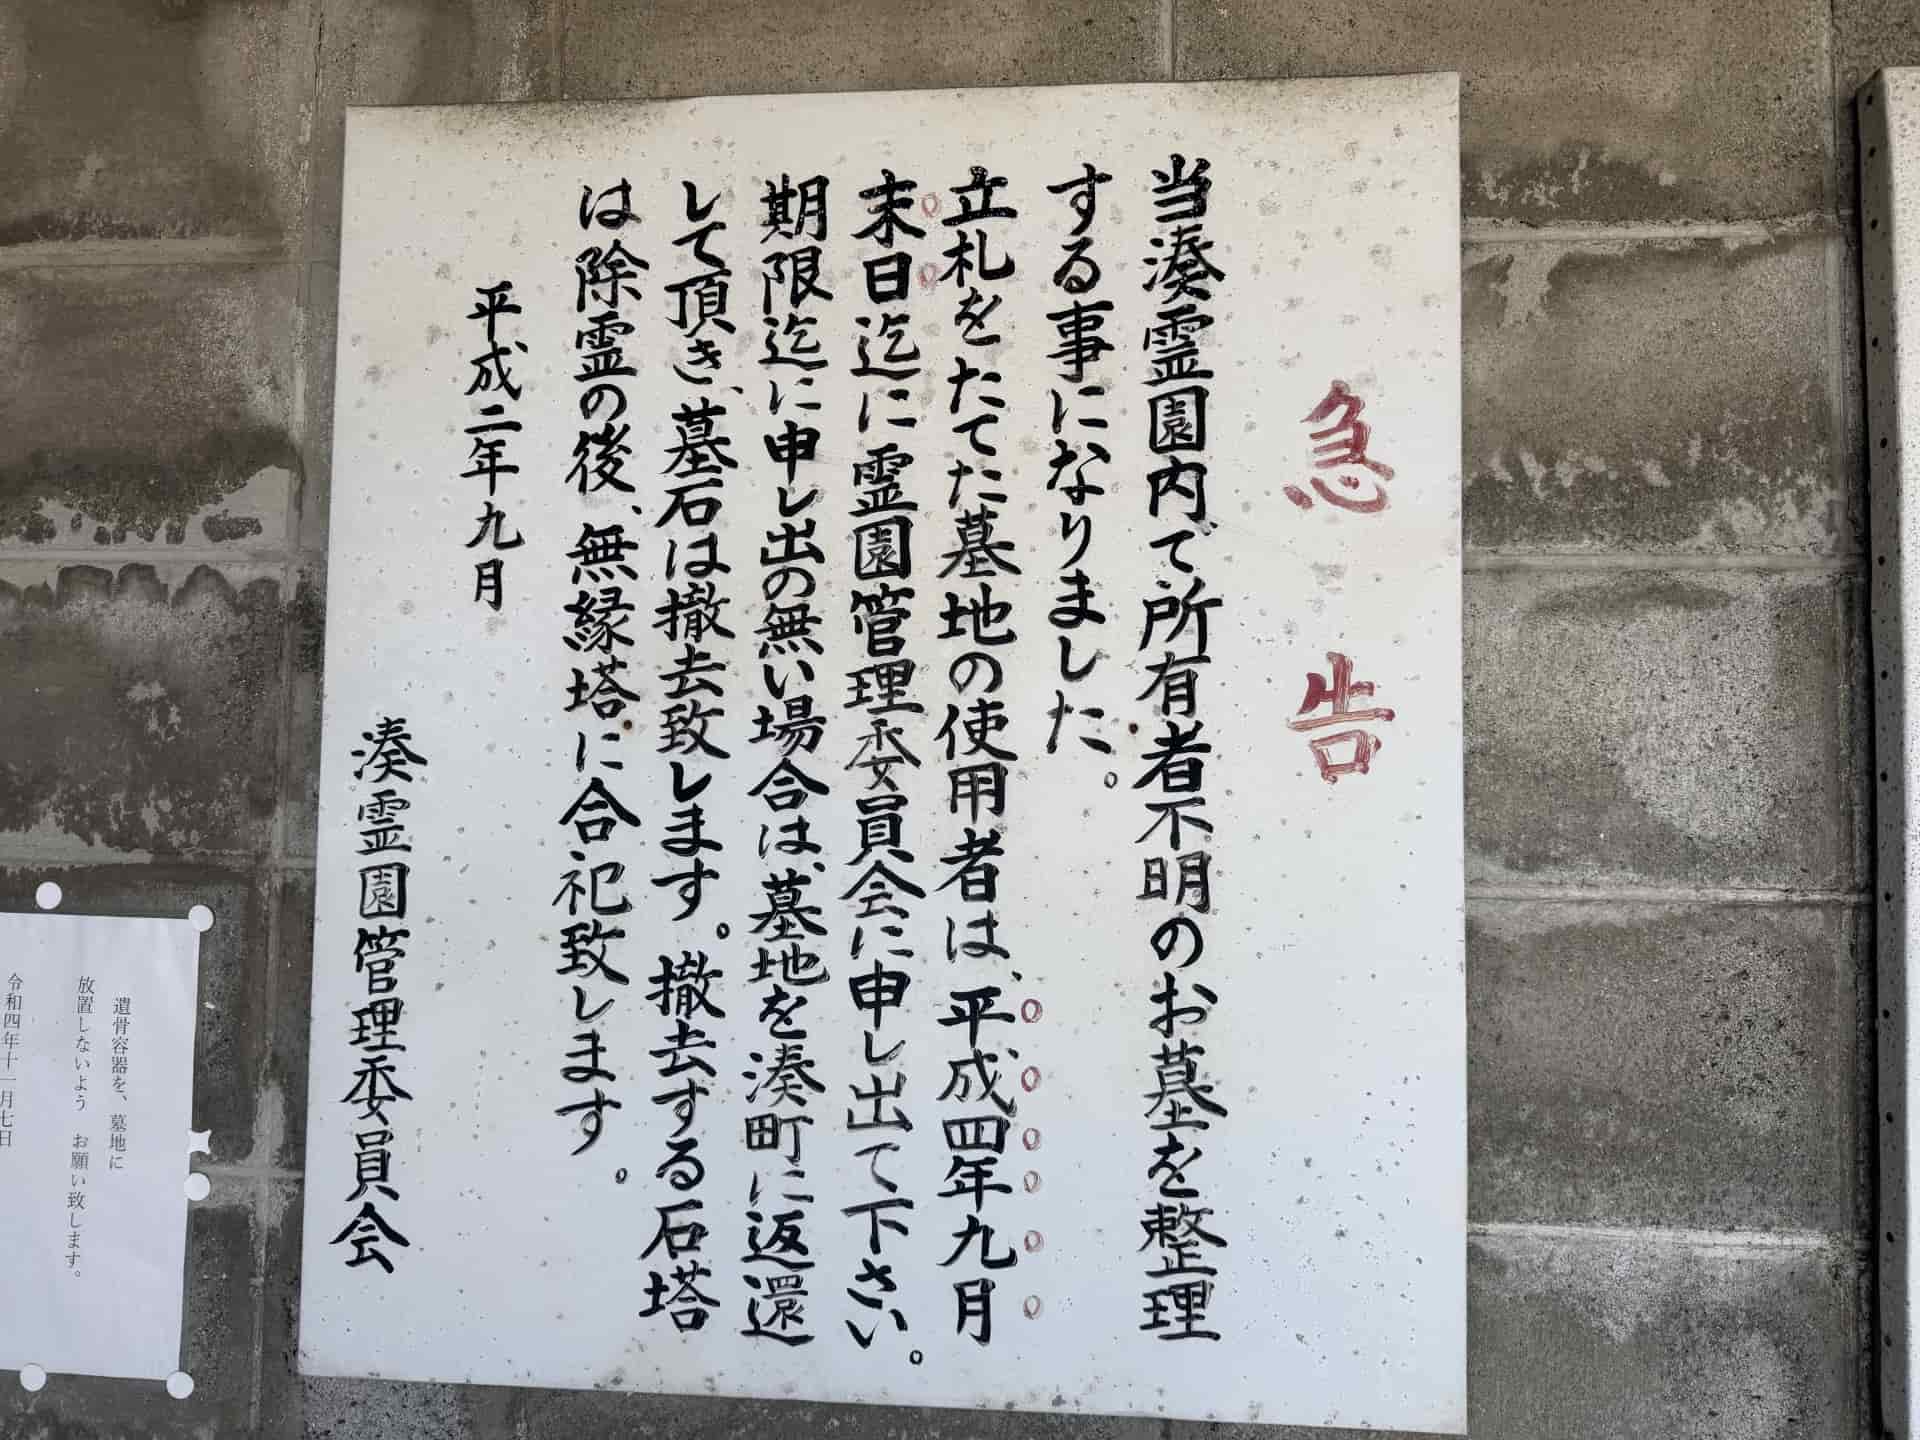 急告
当湊霊園内で所有者不明のお墓を整理
する事になりました。
立札をたてた墓地の使用者は、平成四年九月
末日迄に霊園管理委員会に申し出て下さい。
期限迄に申し出の無い場合は、墓地を湊町に返還
して頂き、墓石は撤去致します。撤去する石塔
は除霊の後、無縁塔に合祀致します。
平成二年九月
湊霊園管理委員会
遺骨容器を、墓地に
放置しないよう お願い致します。
令和四年十一月七日